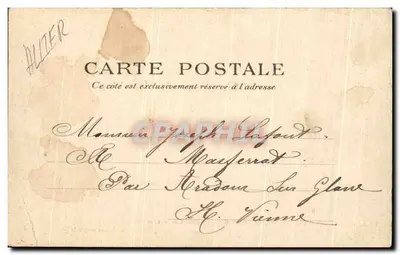 ALLIER
CARTE POSTALE
Ce côté est exclusivement réservé à l'adresse
Monsieur Joseph Lafont.
A Masferrat.
Par Oradour Sur Glane
H. Vienne